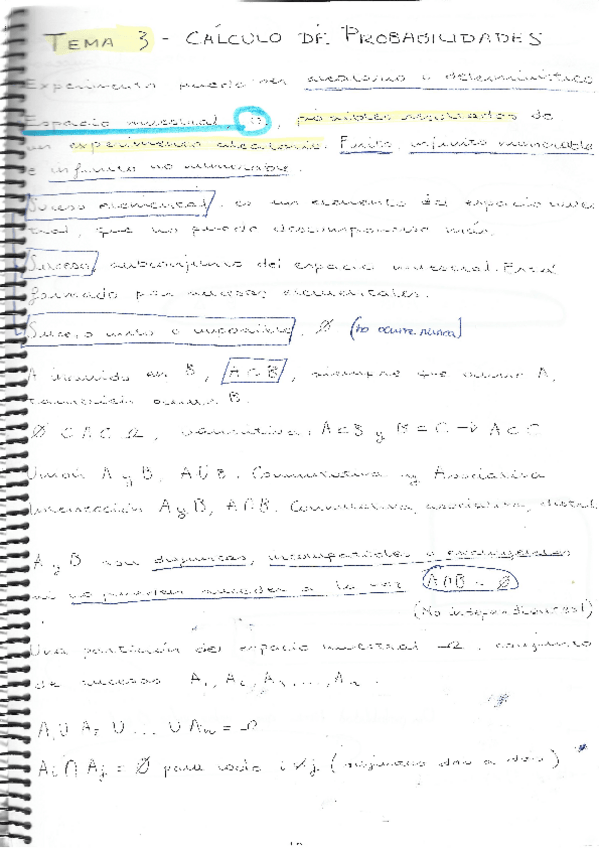 TEMA 3 - CÁLCULO DE PROBABILIDADES
Experimento puede ser aleatorio o determinístico
Espacio muestral, Ω, posibles resultados de
un experimento aleatorio. Finito, infinito numerable
e infinito no numerable.
Suceso elemental, es un elemento del espacio mues-
tral, que no puede descomponerse más.
Suceso, subconjunto del espacio muestral. Está
formado por sucesos elementales.
Suceso nulo o imposible, Ø (no ocurre nunca)
A incluido en B, A ⊂ B, siempre que ocurre A,
también ocurre B.
Ø ⊂ A ⊂ Ω, transitiva: A ⊂ B y B ⊂ C → A ⊂ C
Unión A y B, A∪B. Conmutativa y Asociativa
Intersección A y B, A∩B. Conmutativa, asociativa,
A y B son disjuntos, incompatibles o excluyentes
si no pueden suceder a la vez A∩B = Ø
(No independientes!)
Una partición del espacio muestral Ω, conjunto
de sucesos A₁, A₂, A₃, ..., Aₙ
A₁ ∪ A₂ ∪ ... ∪ Aₙ = Ω
Aᵢ ∩ Aⱼ = Ø para todo i ≠ j (disjuntos dos a dos)